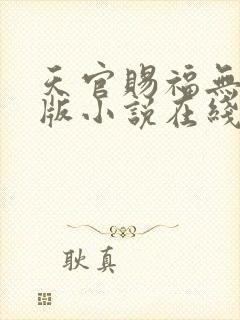 天官賜福無
版小說在綫
耿真